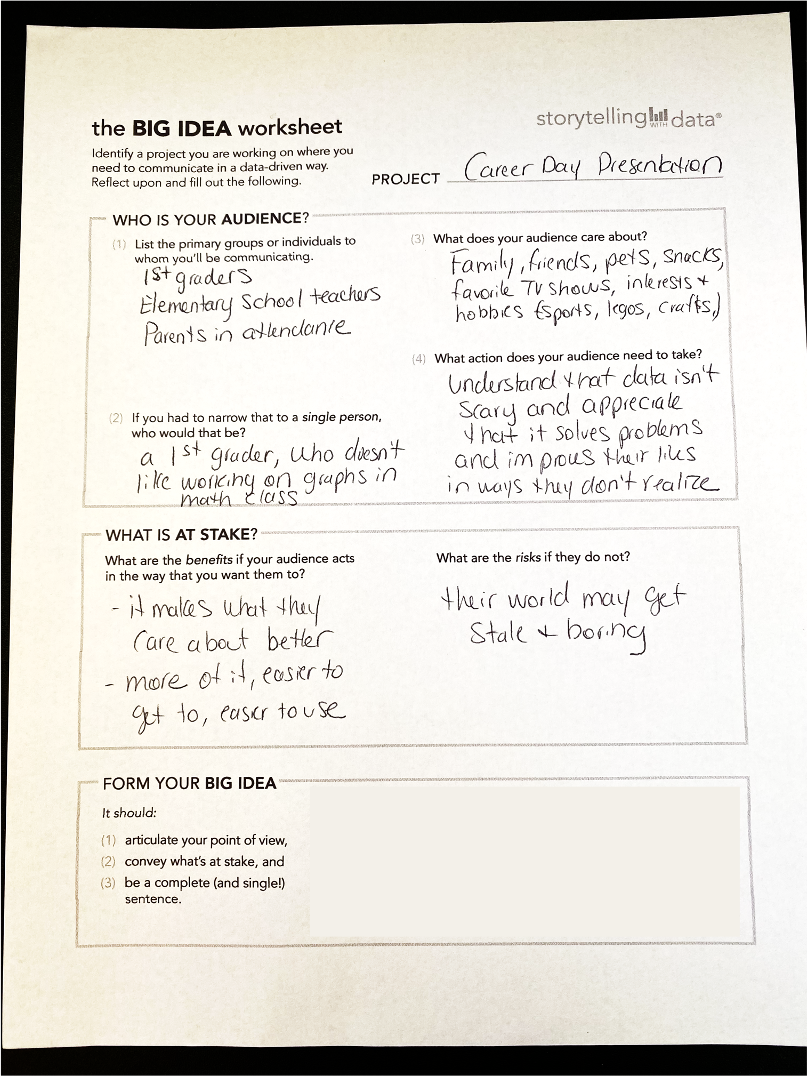 the BIG IDEA worksheet
storytelling WITH data®
Identify a project you are working on where you
need to communicate in a data-driven way.
Reflect upon and fill out the following.
PROJECT Career Day Presentation
WHO IS YOUR AUDIENCE?
(1) List the primary groups or individuals to
whom you'll be communicating.
1st graders
Elementary School teachers
Parents in attendance
(2) If you had to narrow that to a single person,
who would that be?
a 1st grader, who doesn't
like working on graphs in
math class
(3) What does your audience care about?
Family, friends, pets, snacks,
favorite TV shows, interests +
hobbies (sports, legos, crafts)
(4) What action does your audience need to take?
Understand that data isn't
scary and appreciate
that it solves problems
and improves their lives
in ways they don't realize
WHAT IS AT STAKE?
What are the benefits if your audience acts
in the way that you want them to?
- it makes what they
care about better
- more of it, easier to
get to, easier to use
What are the risks if they do not?
their world may get
Stale + boring
FORM YOUR BIG IDEA
It should:
(1) articulate your point of view,
(2) convey what's at stake, and
(3) be a complete (and single!)
sentence.